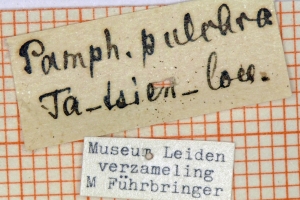 Pamph. pulchra
Ta-tsien-lou.
Museum Leiden
verzameling
M Führbringer